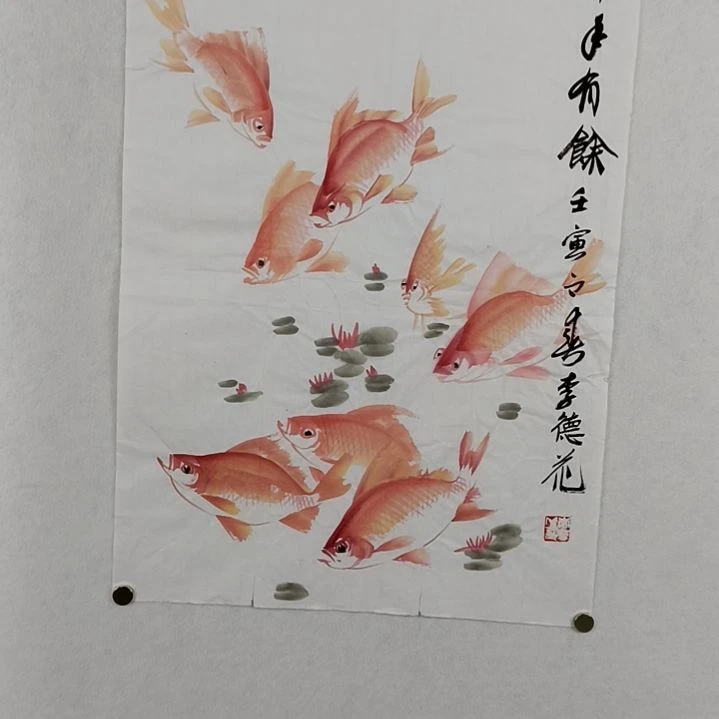 年有餘壬寅之春李德花